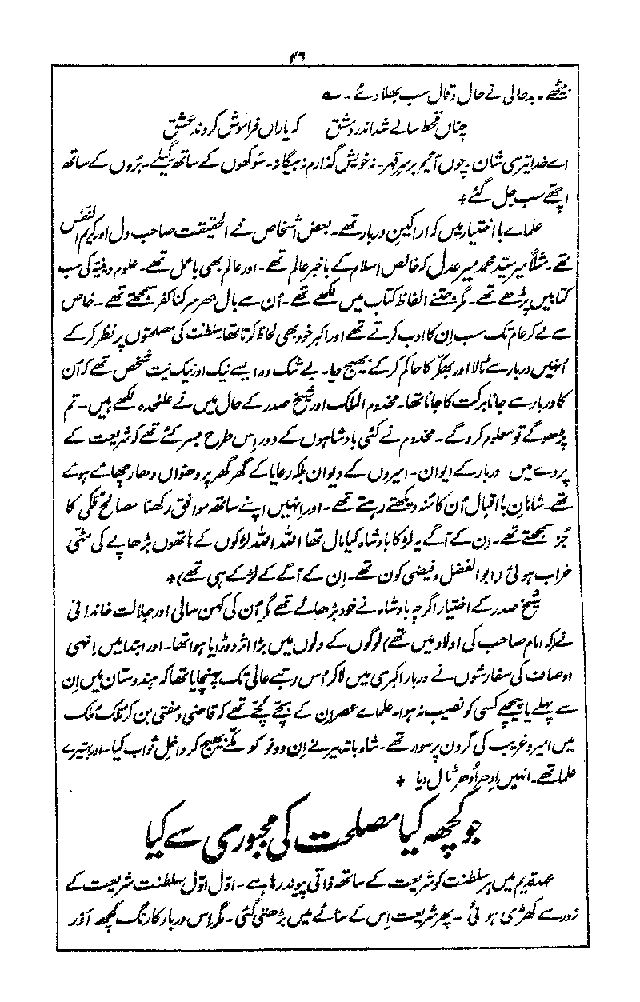 ۴۶
بیٹھے۔ بدحالی نے حال و قال سب بھلا دئے۔ ؎
چناں قحط سالے شد اندر دمشق کہ یاراں فراموش کردند عشق
اے خدا تیری شان۔ چوں آیم بر سر قہر۔ نہ خویش گذارم نہ بیگانہ۔ سوکھوں کے ساتھ گیلے۔ بُروں کے ساتھ
اچھے سب جل گئے +
علماے با اختیار میں کہ اراکین دربار تھے۔ بعض اشخاص نے الحقیقت صاحب دل اور کریم النفس
تھے۔ مثلاً میر سید محمد میر عدل کہ خالص اسلام کے باخبر عالم تھے۔ اور عالم بھی باعمل تھے۔ علوم دینیہ کی سب
کتابیں پڑھے تھے۔ مگر جتنے الفاظ کتاب میں لکھے تھے۔ اُن سے بال بھر سرکنا کفر سمجھتے تھے۔ خاص
سے لے کر عام تک سب ان کا ادب کرتے تھے اور اکبر خود بھی لحاظ کرتا تھا سلطنت کی مصلحتوں پر نظر کر کے
اُنہیں دربار سے ٹالا اور بھکر کا حاکم کر کے بھیج دیا۔ بے شک وہ ایسے نیک اور نیک نیت شخص تھے کہ اُن
کا دربار سے جانا برکت کا جانا تھا۔ مخدوم الملک اور شیخ صدر کے حال میں نے علیٰحدہ لکھے ہیں۔ تم
پڑھو گے تو معلوم کرو گے۔ مخدوم نے کئی بادشاہوں کے دور اس طرح بسر کئے تھے کہ شریعت کے
پردے میں دربار کے ایوان۔ امیروں کے دیوان بلکہ رعایا کے گھر گھر پر دھواں دھار چھائے ہوئے
تھے۔ شاہانِ با اقبال اُن کا منہ دیکھتے رہتے تھے۔ اور انہیں اپنے ساتھ موافق رکھنا مصالح ملکی کا
جُز سمجھتے تھے۔ ان کے آگے یہ لڑکا بادشاہ کیا مال تھا اللہ اللہ لڑکوں کے ہاتھوں بڑھاپے کی مٹی
خراب ہوئی (ابوالفضل و فیضی کون تھے۔ ان کے آگے کے لڑکے ہی تھے) +
شیخ صدر کے اختیار اگرچہ بادشاہ نے خود بڑھائے تھے مگر اُن کی کہن سالی اور جلالت خاندانی
نے (کہ امام صاحب کی اولاد میں تھے) لوگوں کے دلوں میں بڑا اثر دوڑایا ہوا تھا۔ اور ابتدا میں انہی
اوصاف کی سفارشوں نے دربار اکبری میں لا کر اس رتبے عالی تک پہنچایا تھا کہ ہندوستان میں ان
سے پہلے یا پیچھے کسی کو نصیب نہ ہوا۔ علماے عصر ان کے بچے کچے تھے کہ قاضی و مفتی بن کر ملک ملک
میں امیر و غریب کی گردن پر سوار تھے۔ شاہ باتدبیر نے ان دونوں کو مکّے بھیج کر داخل ثواب کیا۔ اور بہتیرے
علما تھے۔ انہیں اِدھر اُدھر ٹال دیا +
جو کچھ کیا مصلحت کی مجبوری سے کیا
عہد قدیم میں ہر سلطنت کو شریعت کے ساتھ ذاتی پیوند رہا ہے۔ اوّل اوّل سلطنت شریعت کے
زور سے کھڑی ہوئی۔ پھر شریعت اس کے سائے میں بڑھتی گئی۔ مگر اس دربار کا رنگ کچھ اَور